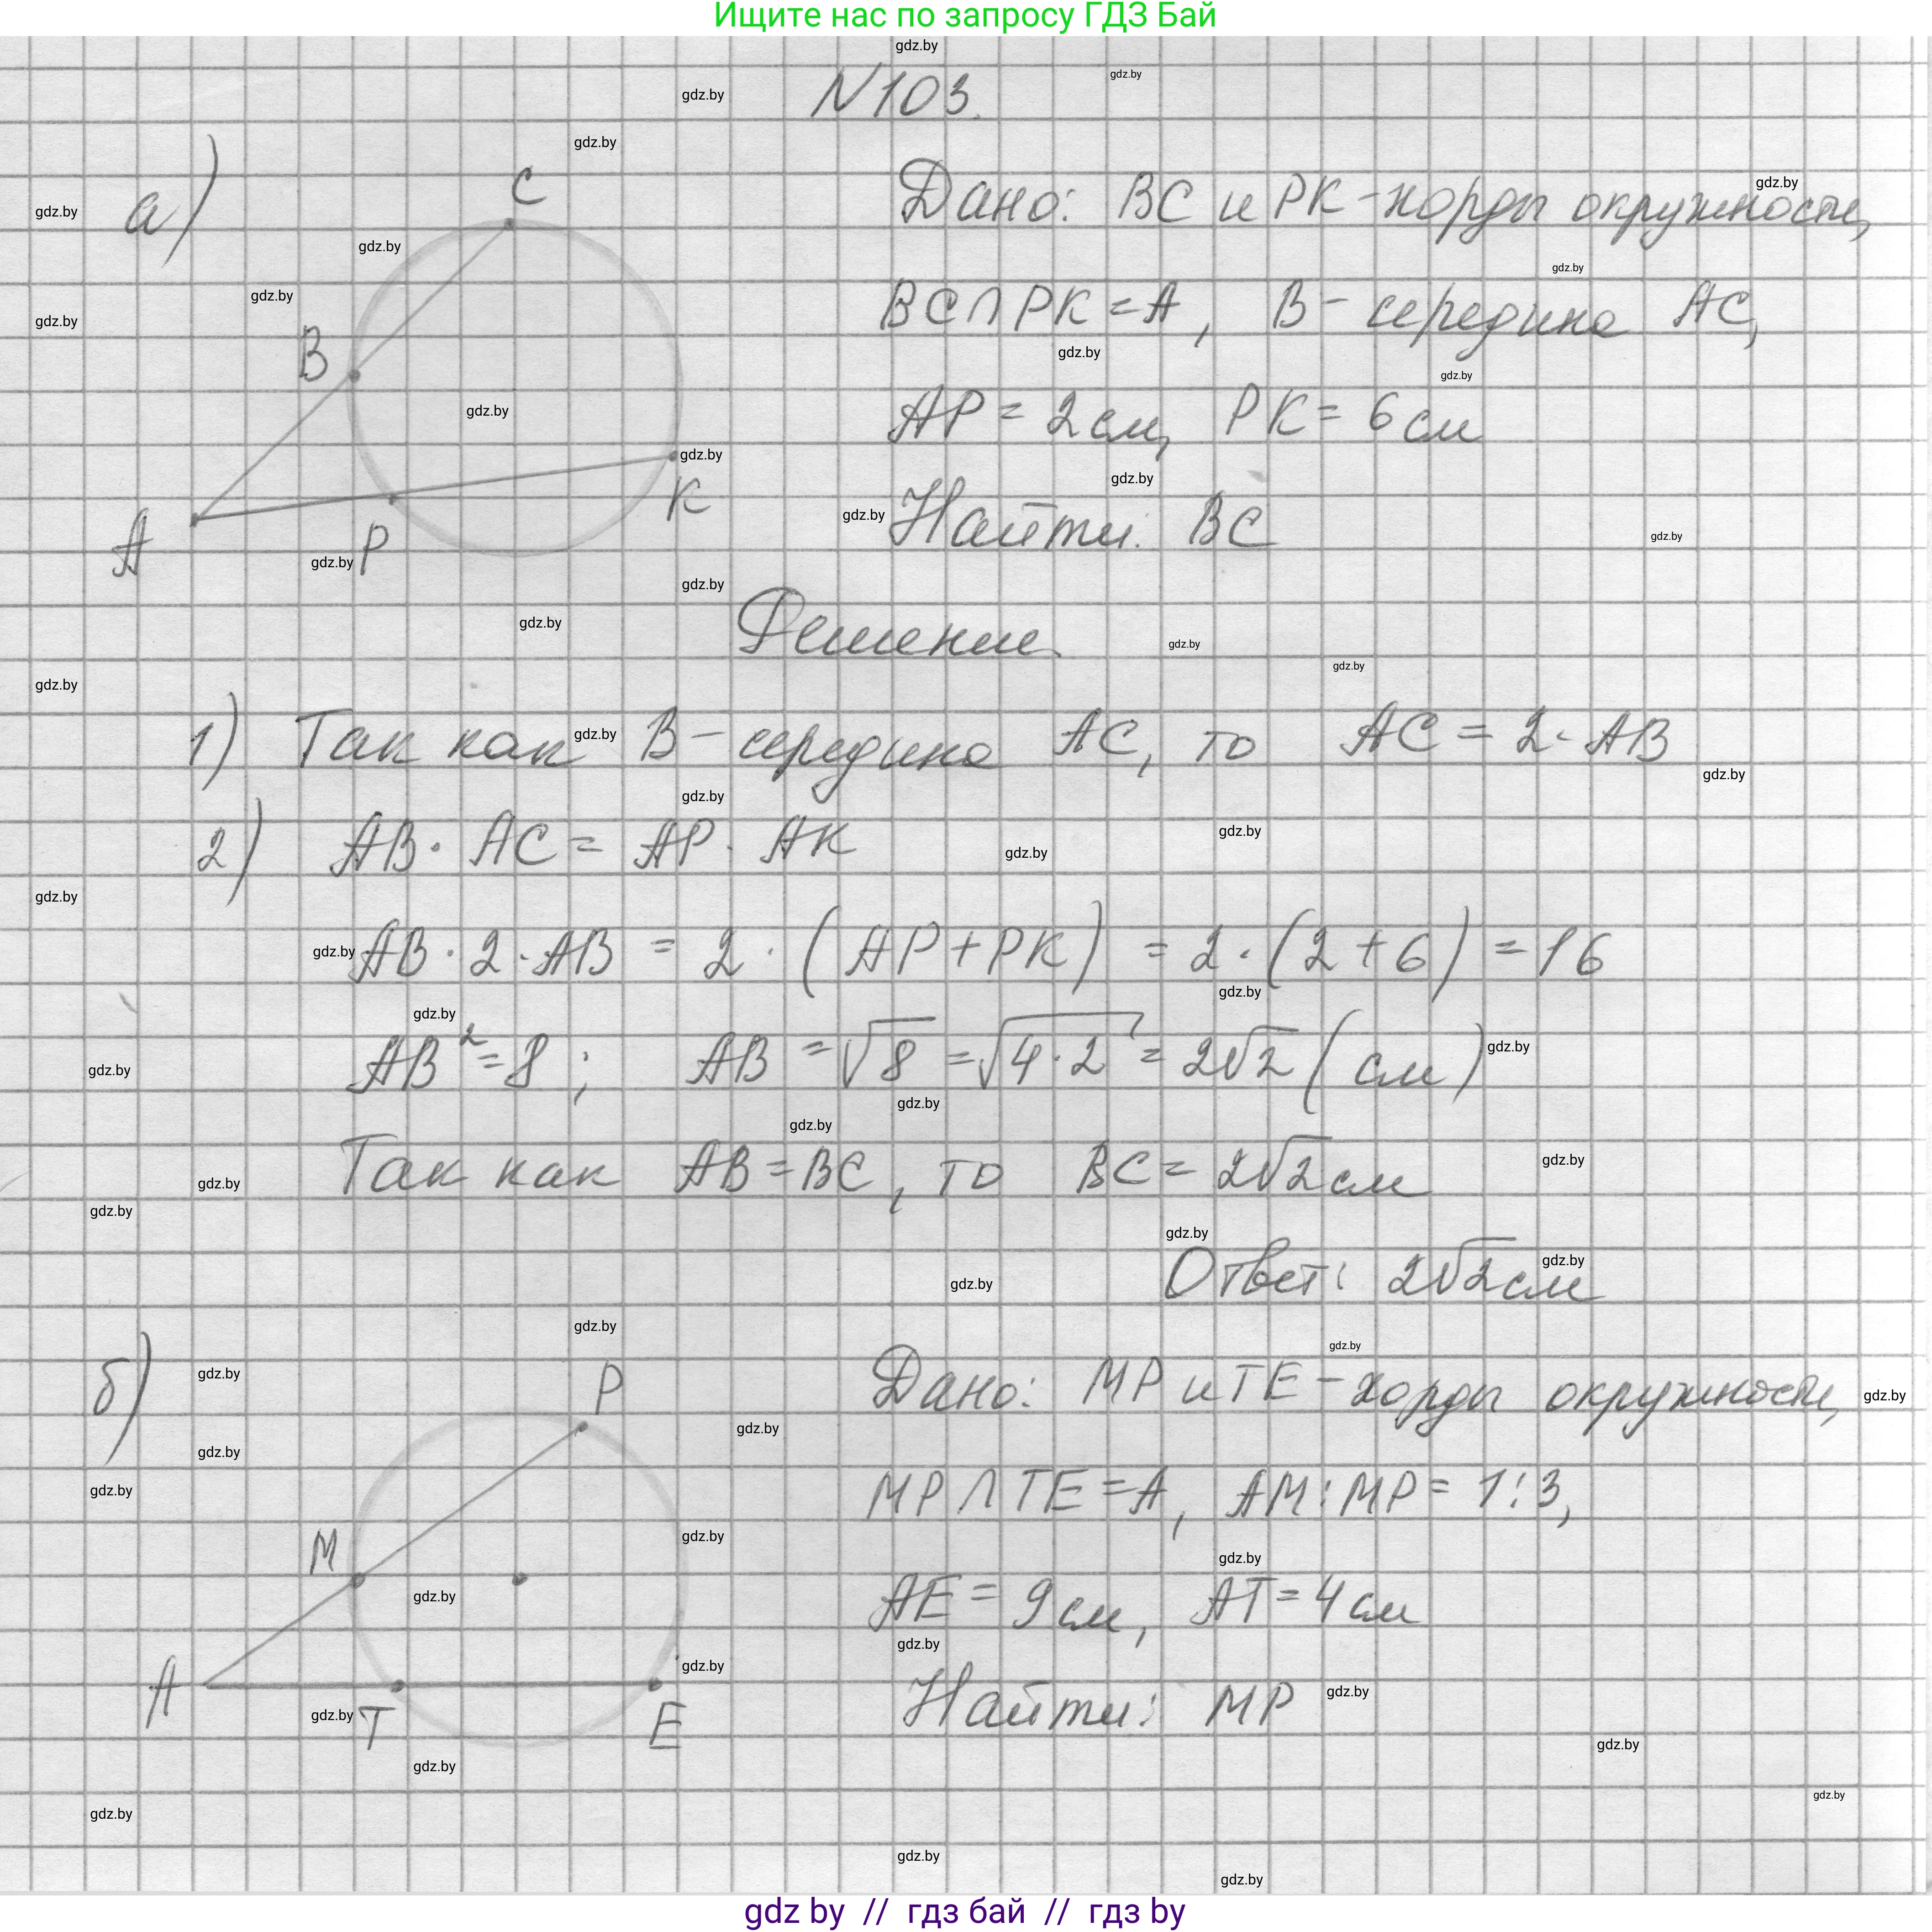 Ищите нас по запросу ГДЗ Бай
N103.
а)
C
B
A
P
K
Дано: BC и PK - хорды окружности,
BC ∩ PK = A, B - середина AC,
AP = 2 см, PK = 6 см
Найти: BC
Решение.
1) Так как B - середина AC, то AC = 2·AB
2) AB · AC = AP · AK
AB · 2 · AB = 2 · (AP + PK) = 2 · (2 + 6) = 16
AB² = 8; AB = √8 = √4·2 = 2√2 (см)
Так как AB = BC, то BC = 2√2 см
Ответ: 2√2 см
б)
P
M
A
T
E
Дано: MP и TE - хорды окружности,
MP ∩ TE = A, AM : MP = 1 : 3,
AE = 9 см, AT = 4 см
Найти: MP
gdz by // гдз бай // гдз by